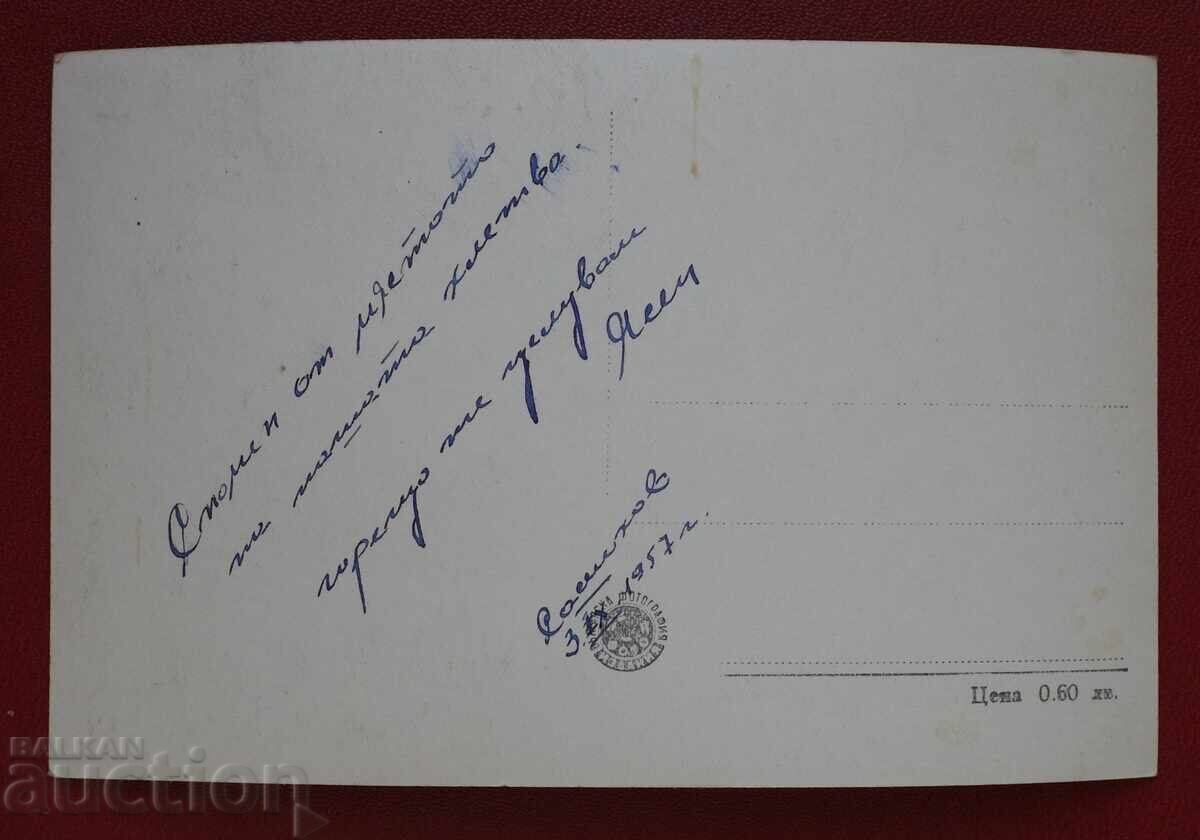 Спомен от мястото
на нашата клетва.
горещо те целувам
Ясен
Сашков
3.IX 1957 г.
ФОТОГРАФИЯ
Цена 0.60 лв.
BALKAN
auction